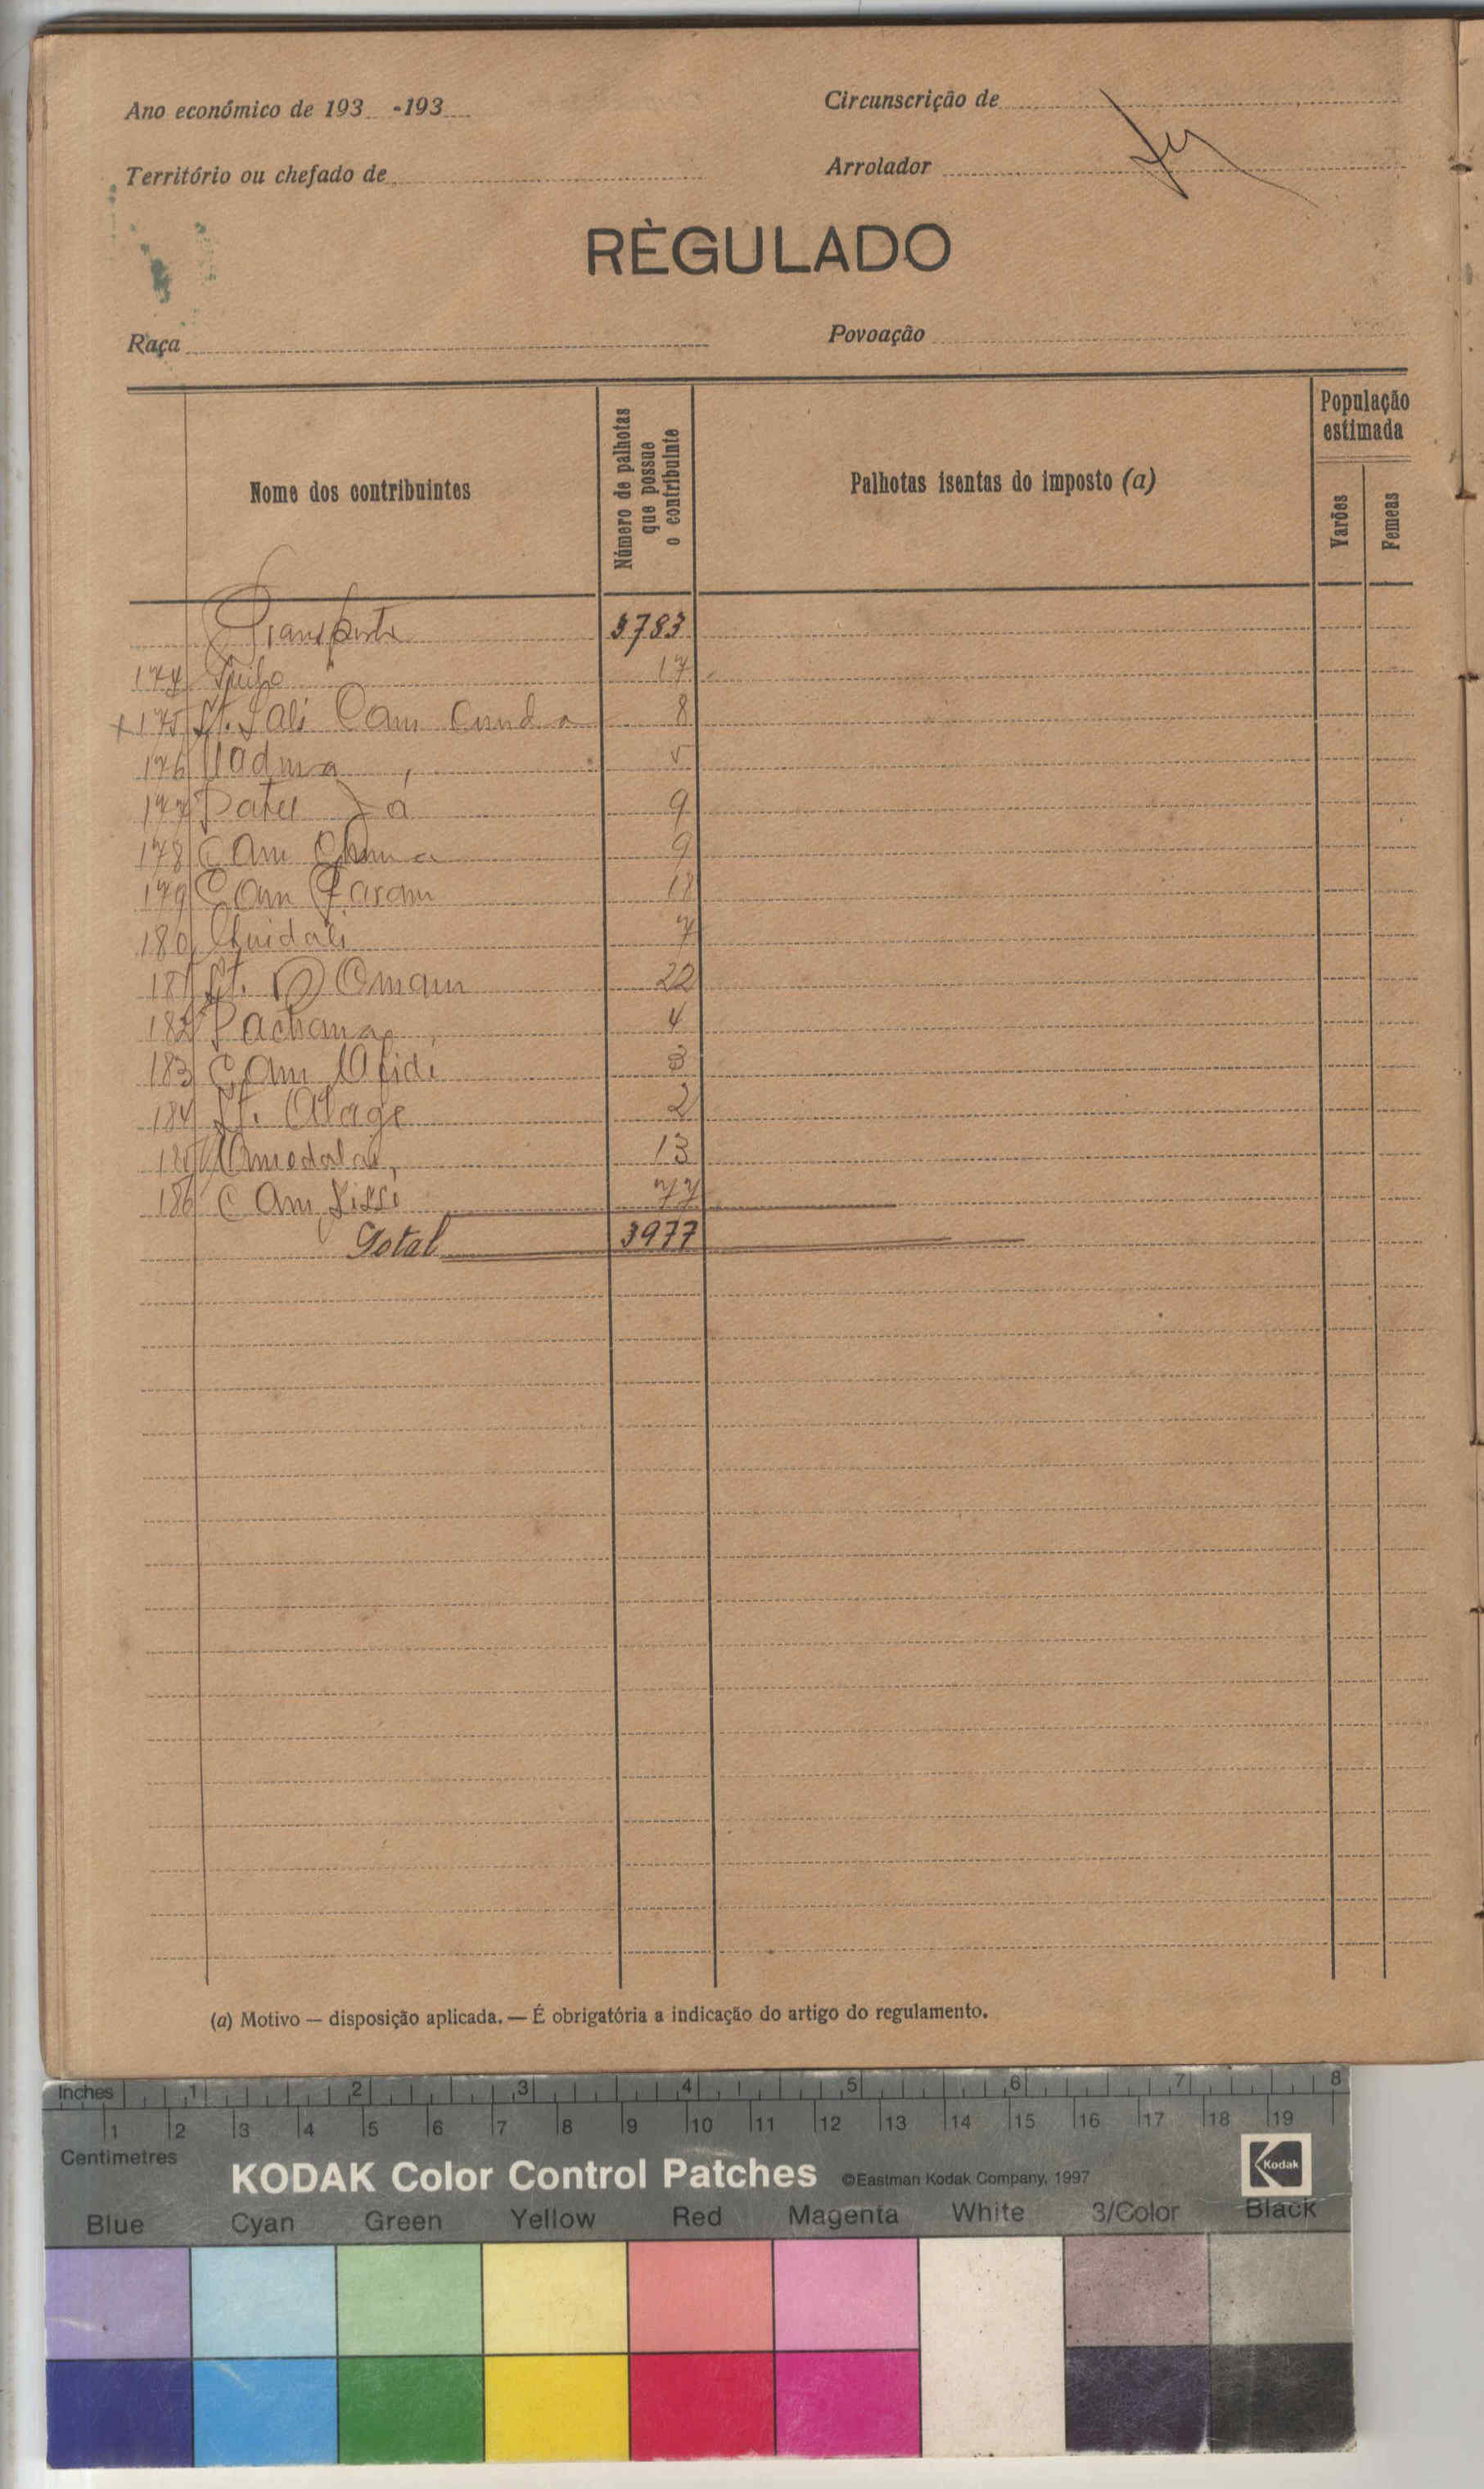 Ano económico de 193 -193
Circunscrição de
Território ou chefado de
Arrolador
RÈGULADO
Raça
Povoação
Nome dos contribuintes
Número de palhotas que possue o contribuinte
Palhotas isentas do imposto (a)
População estimada
Varões
Femeas
Transporte 3783
174 17
+ 175 St. Jali Cam Cunda 8
176 5
177 9
178 Cam 9
179 Cam Faram 18
180 7
181 St. Omam 22
182 Pachana 4
183 Cam 3
184 St. Alage 2
185 13
186 Cam Sissi 77
Total 3977
(a) Motivo — disposição aplicada. — É obrigatória a indicação do artigo do regulamento.
Inches 1 2 3 4 5 6 7 8
1 2 3 4 5 6 7 8 9 10 11 12 13 14 15 16 17 18 19
Centimetres
KODAK Color Control Patches ©Eastman Kodak Company, 1997 Kodak
Blue Cyan Green Yellow Red Magenta White 3/Color Black